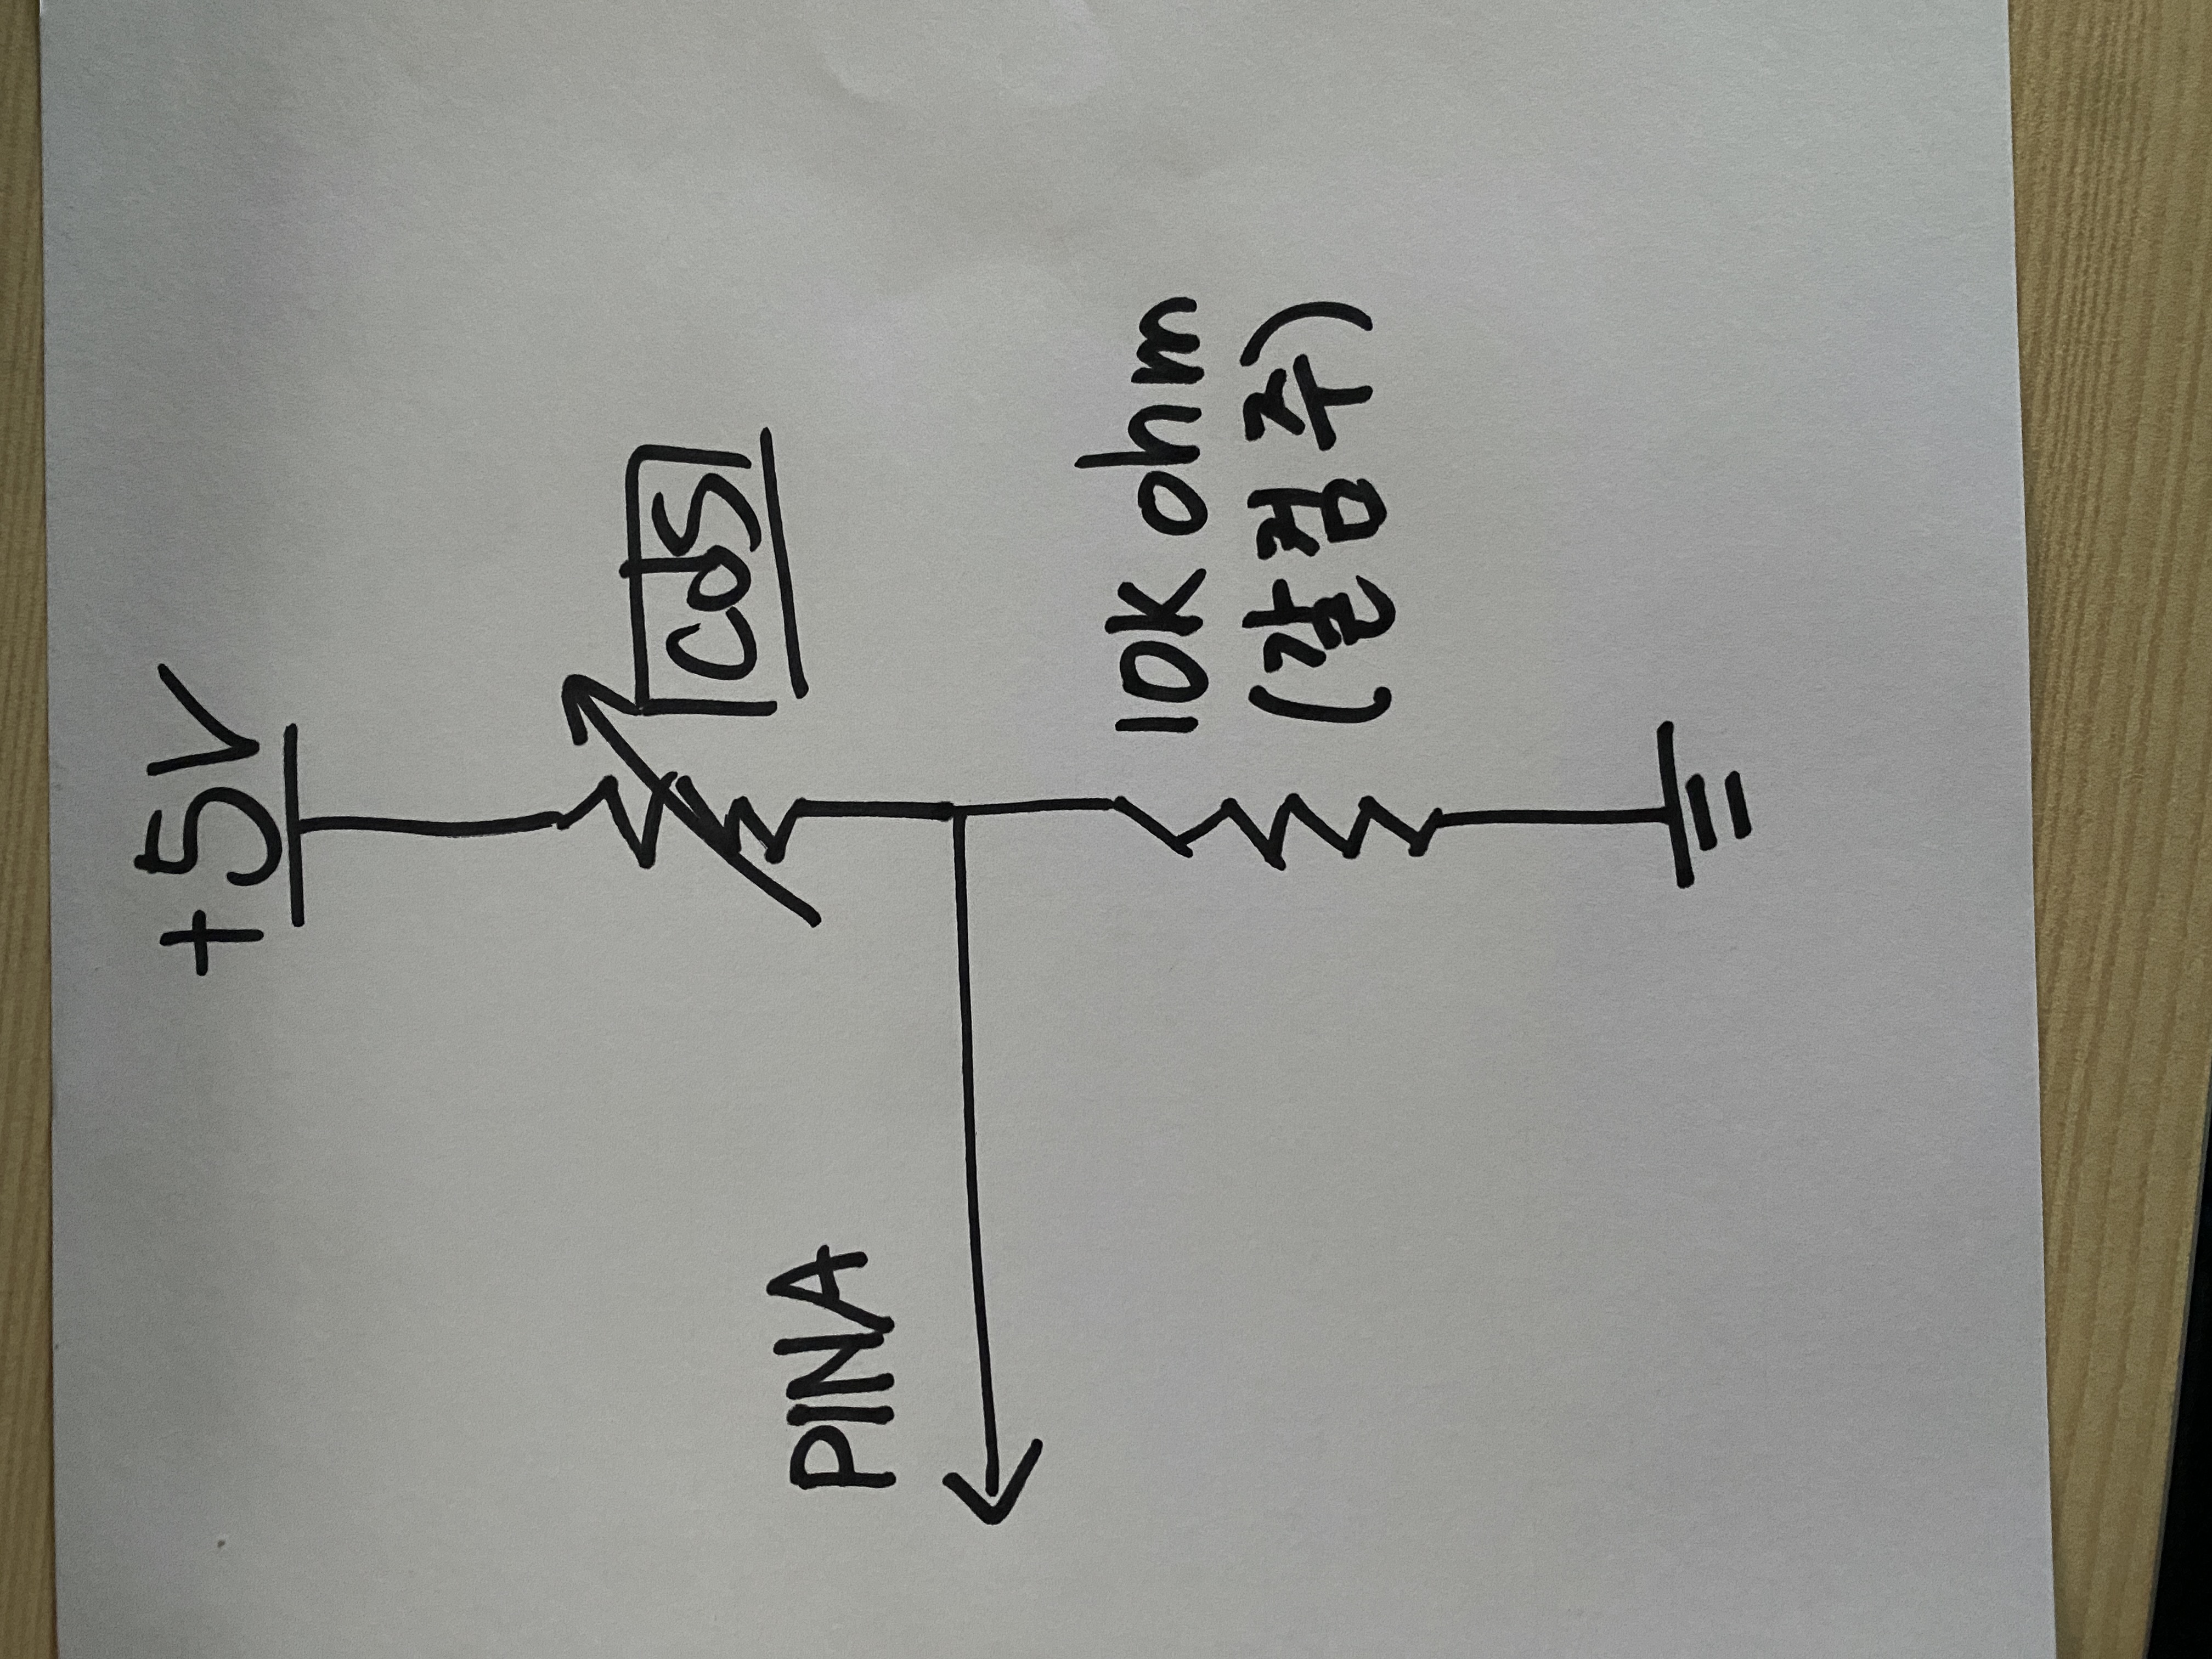 +5V
cds
PINA
10K ohm
(갈검주)